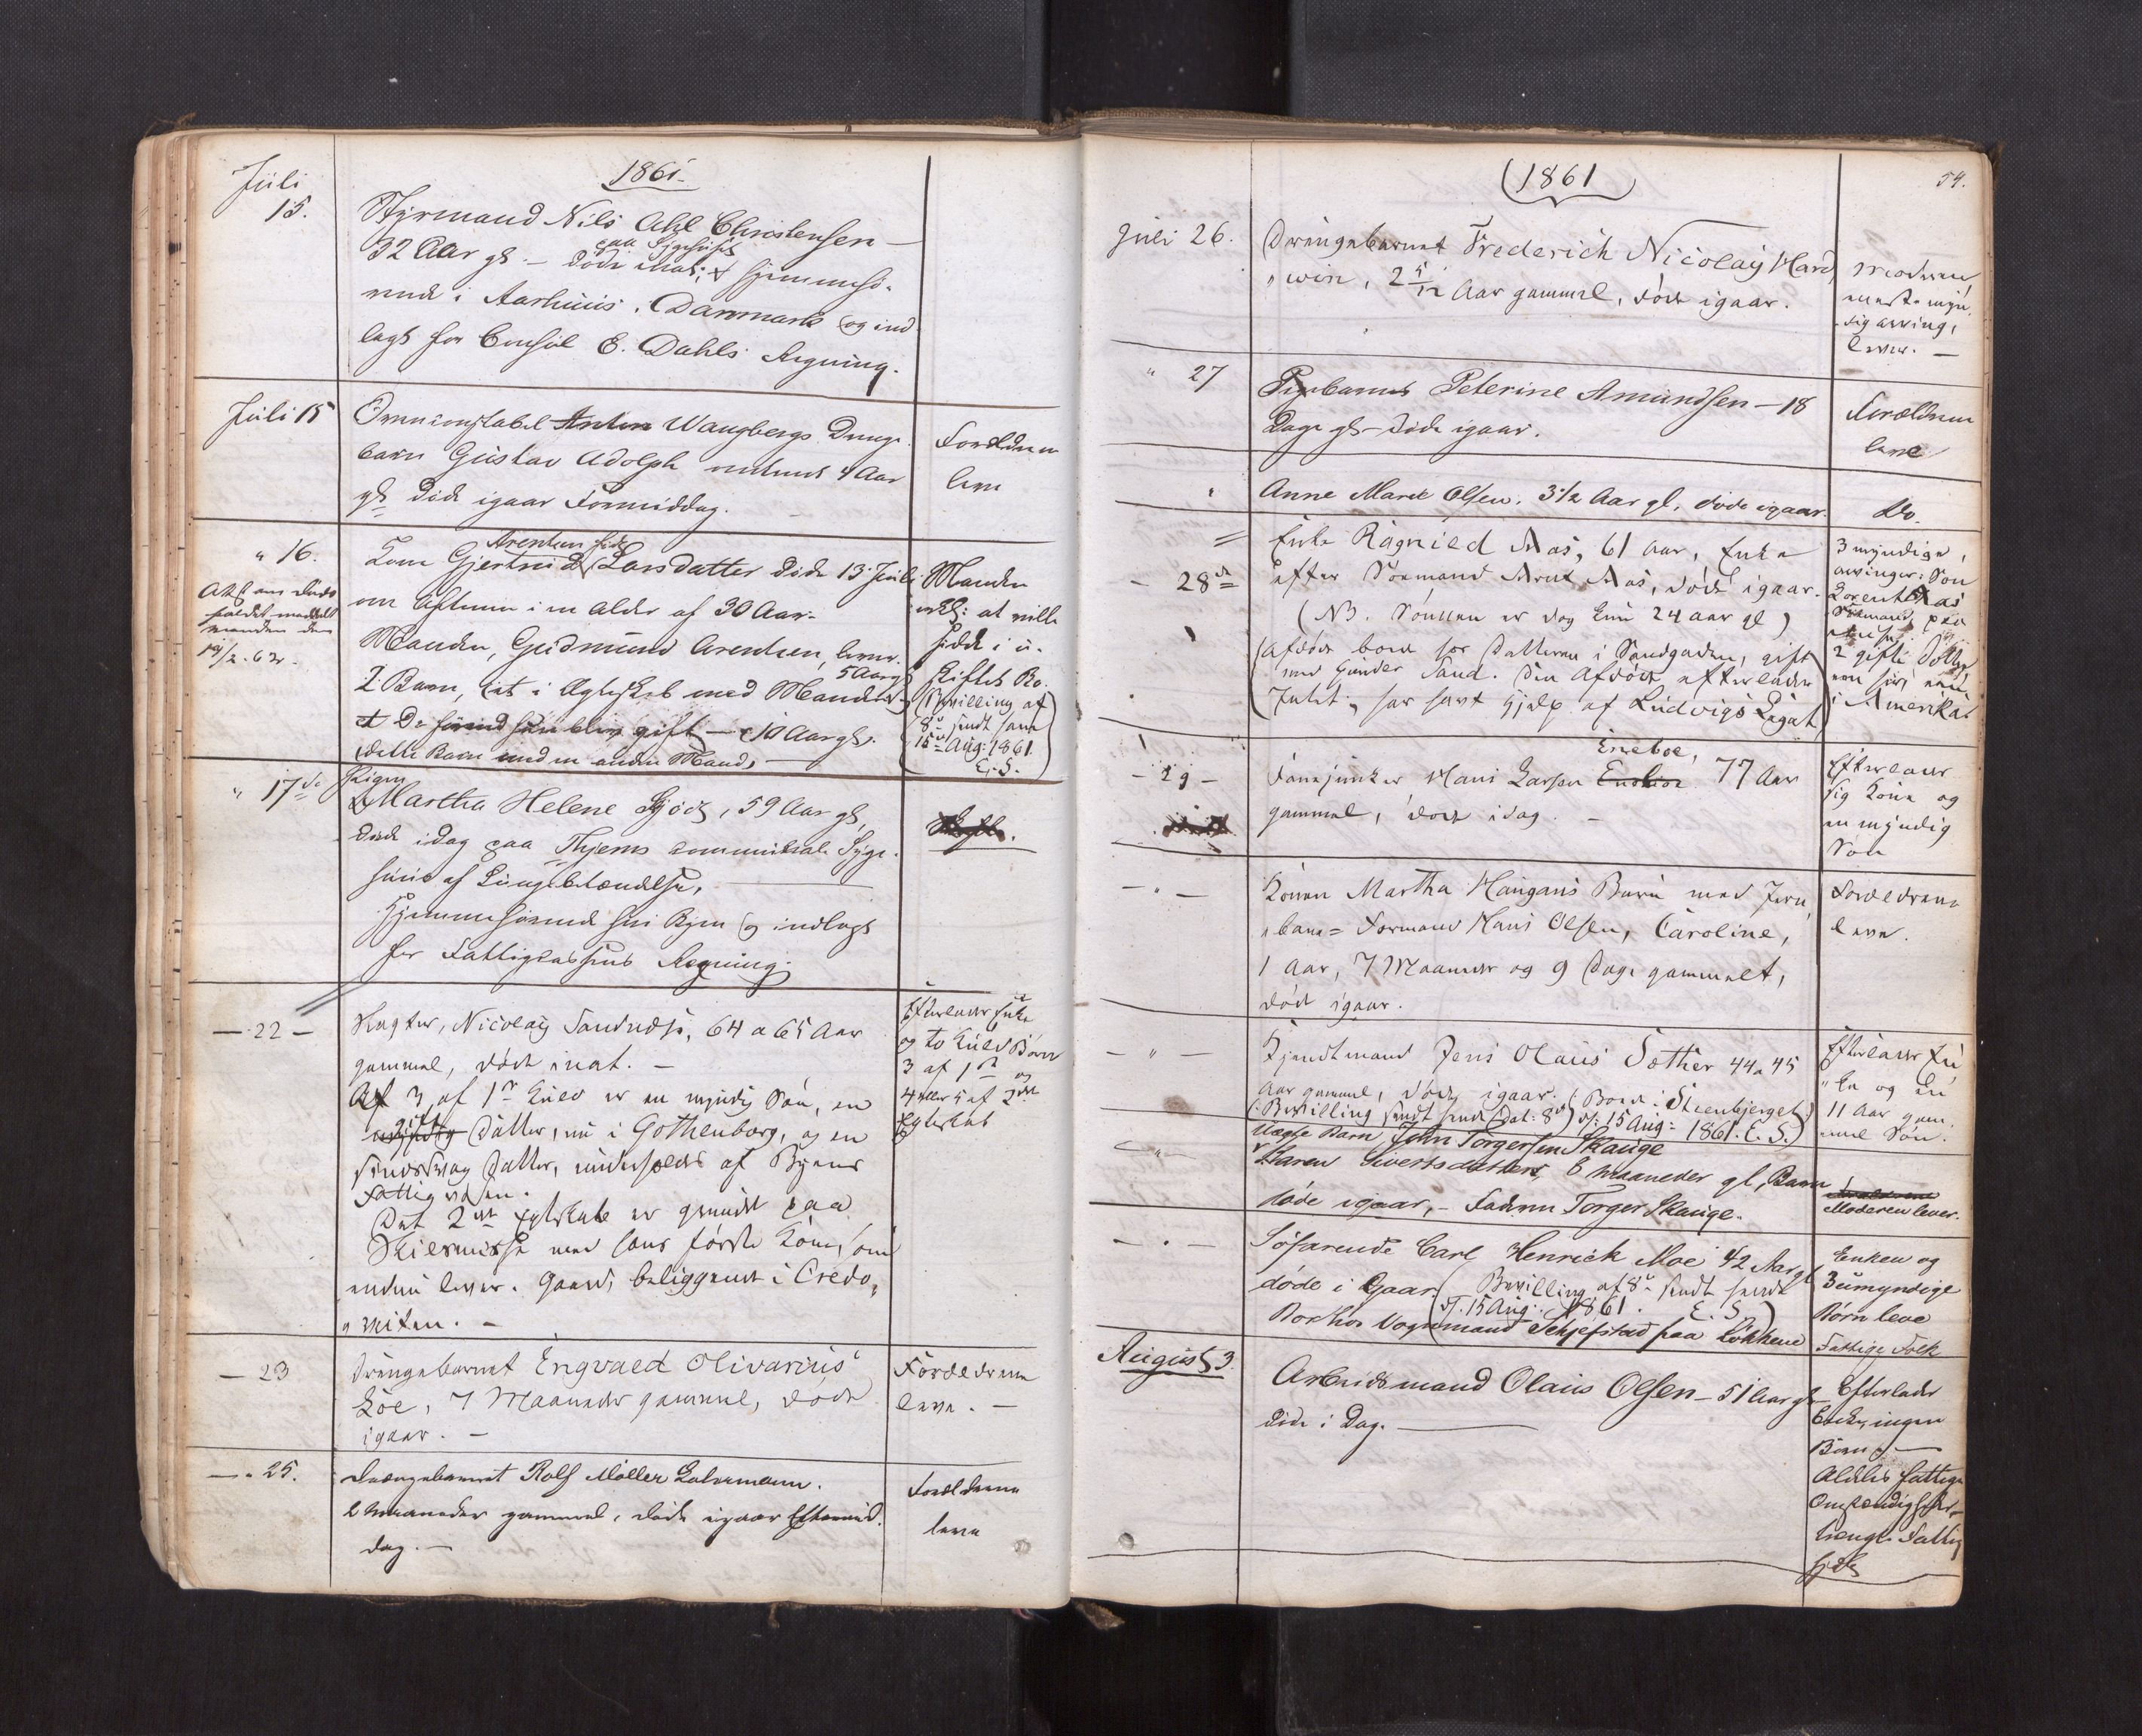 1861.
Juli
15.
Styrmand Nils Ahl Christensen
32 Aar gl. – døde inat; paa Sygehuset
hjemmehø-
rende i Aarhuus, Danmark og ind
lagt for Consul E. Dahls Regning.
Juli 15
Wangbergs Drenge
barn Gustav Adolph 4 Aar
gl døde igaar Formiddag.
Forældrene
leve
" 16.
Kone Gjertrud Larsdatter døde 13 Juli
om Aftenen i en Alder af 30 Aar.
Manden, Gudmund Arentsen, lever.
2 Børn, (et i Ægteskab med Manden 5 Aar gl
10 Aar gl.
dette Barn med en anden Mand.
Manden
at ville
sidde i u-
skiftet Bo.
(Bevilling af
8de sendt ham
15de Aug: 1861.
E. S.)
" 17de
Pigen
Martha Helene 59 Aar gl,
døde idag paa Thjems communale Syge-
huus af Lungebetændelse,
Hjemmehørende her i Byen og indlagt
for Fattigkassens Regning.
– 22 –
Nicolay 64 a 65 Aar
gammel, døde inat. –
Af 3 af 1ste Kuld er en myndig Søn, en
gift Datter, nu i Gothenborg, og en
Datter, understøttes af Byens
Fattigvæsen.
Det 2det Ægteskab er grundet paa
Skilsmisse med hans første Kone, som
endnu lever. Gaard, beliggende i
Efterlader Enke
og to Kuld Børn
3 af 1ste og
4 eller 5 af 2det
Ægteskab
– 23
Drengebarnet Engvald Olivarius
Loe, 7 Maaneder gammel, døde
igaar. –
Forældrene
leve. –
– " 25.
Drengebarnet Rolf Møller
2 Maaneder gammel, døde igaar Eftermid-
dag. –
Forældrene
leve
(1861)
54.
Juli 26.
Drengebarnet Frederich Nicolay Hard
"win, 2 5/12 Aar gammel, døde igaar.
Moderen,
lever. –
" 27
Pigebarnet Peterine Amundsen – 18
Dage gl – døde igaar.
Forældrene
leve
"
Anne Marie Olsen. 3 1/2 Aar gl, døde igaar.
Do.
– 28de
Enke Ragnild Aas, 61 Aar, Enke
efter Sømand Arnt Aas, døde igaar.
(NB. Sønnen er dog kun 24 aar gl)
(Afdøde boede hos Datteren i Sandgaden, gift
med Gunder Sand. Den Afdøde efterlader
Intet; har havt Hjelp af Ludvigs Legat)
3 myndige
arvinger: Søn
Lorents Aas
Sømand, paa
Reise.
2 gifte Døttre
i Amerika
– 29 –
Fanejunker Hans Larsen Eneboe, 77 Aar
gammel, døde idag. –
Efterlader
sig Kone og
en myndig
Søn
– " –
Konen Martha Haugans Barn med Jern
"bane= Formand Hans Olsen, Caroline,
1 Aar, 7 Maaneder og 9 Dage gammelt,
døde igaar.
Forældrene
leve.
– " –
Jens Olaus Sæther 44 a 45
Aar gammel, døde igaar. (Boede i Steenbjerget)
(Bevilling sendt Dat: 8de d: 15 Aug: 1861. E. S.)
Efterlader En
"ke og en
11 Aar gam
mel Søn.
– " –
uægte Barn John Torgersen Skauge
Karen Sivertsdatters, 6 Maaneder gl, Barn
døde igaar, – Faderen Torger Skauge.
Moderen lever.
– " –
Søfarende Carl Henrick Moe 42 Aar gl
døde i Gaar. (Bevilling af 8de sendt
d. 15 Aug: 1861. E. S.)
Boe hos Vognmand Schjefstad paa Løkkene
Enken og
3 umyndige
Børn leve
Fattige Folk
August 3.
Arbeidsmand Olaus Olsen – 51 Aar gl
døde i Dag.
Efterlader
Enke, ingen
Børn –
Aldeles fattige
Omstændigheder,
Fattig
hjelp